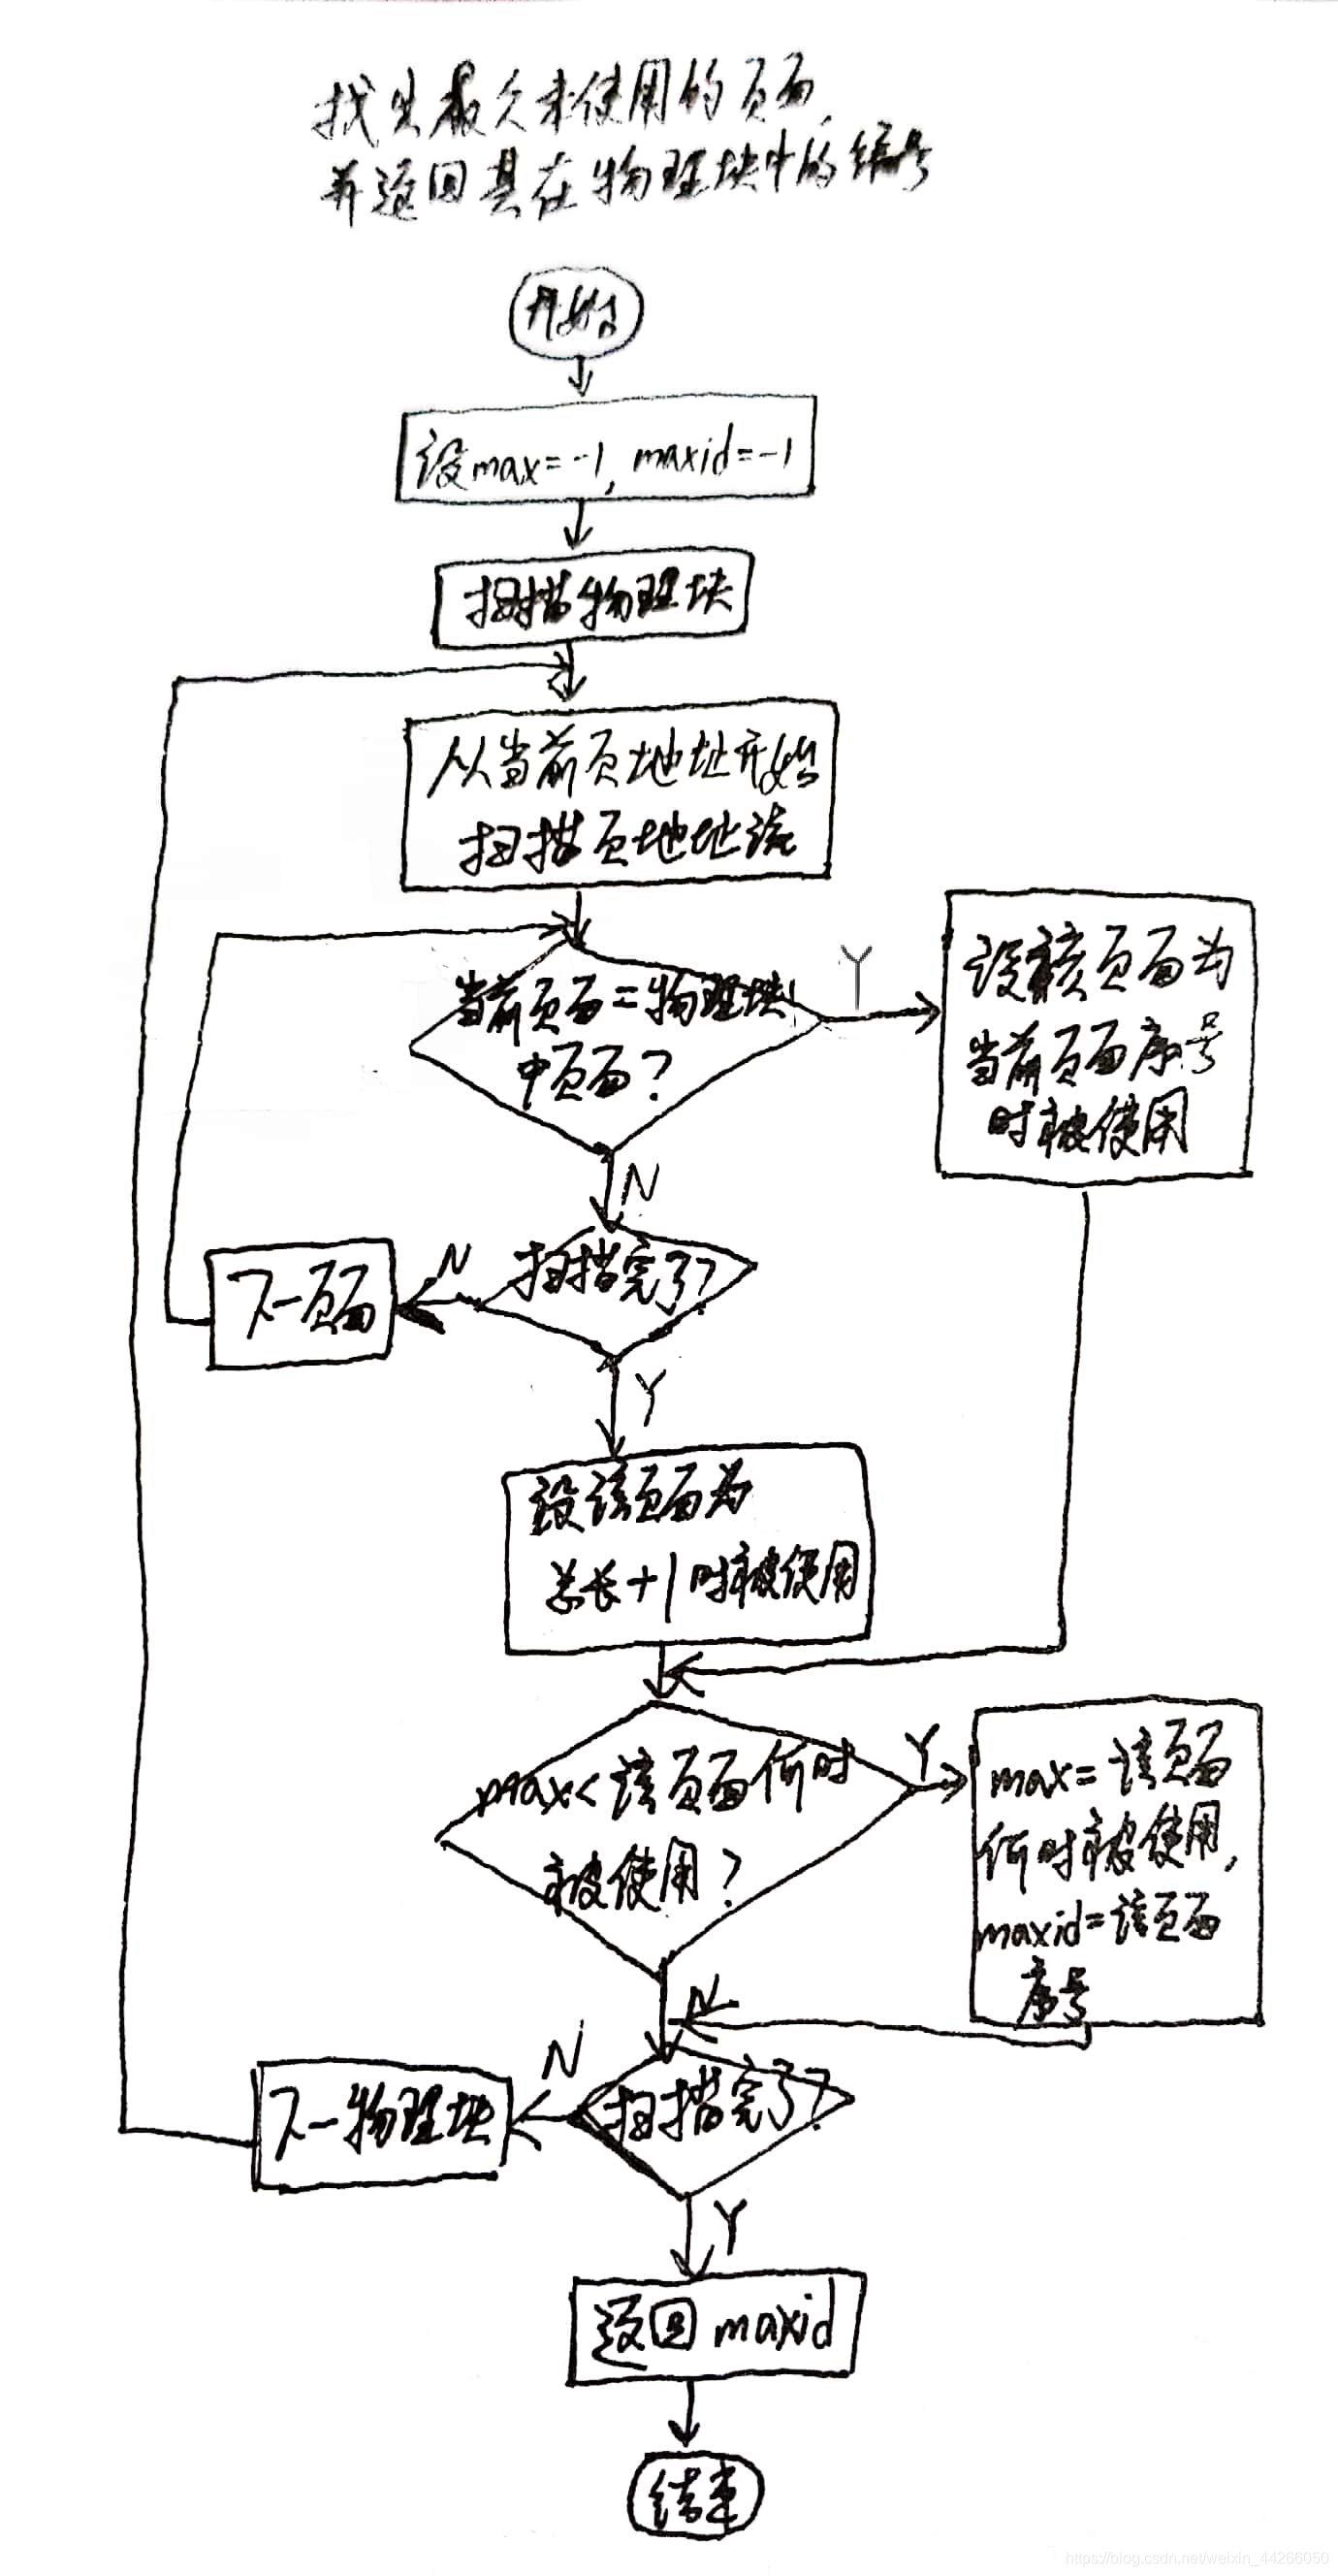 找出最久未使用的页面,
并返回其在物理块中的编号
开始
设max=-1, maxid=-1
扫描物理块
从当前页地址开始
扫描页地址流
当前页面=物理块
中页面?
Y
设该页面为
当前页面序号
时被使用
N
扫描完了?
N
下一页面
Y
设该页面为
总长+1时被使用
max<该页面何时
被使用?
Y
max=该页面
何时被使用,
maxid=该页面
序号
N
扫描完了?
N
下一物理块
Y
返回 maxid
结束
https://blog.csdn.net/weixin_44266050